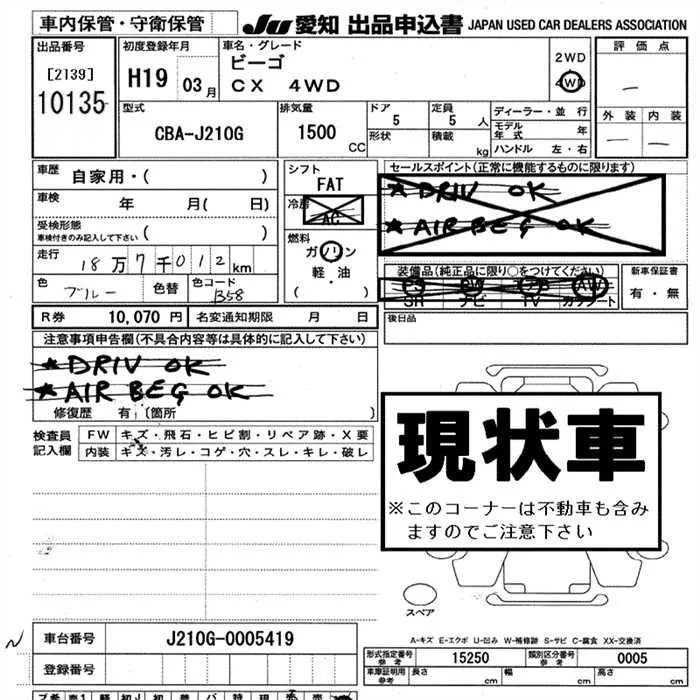 車内保管・守衛保管
JU 愛知 出品申込書 JAPAN USED CAR DEALERS ASSOCIATION
出品番号
[2139]
10135
初度登録年月
H19 03月
車名・グレード
ビーゴ
CX 4WD
2WD
4WD
評価点
外装 内装
型式
CBA-J210G
排気量
1500
CC
ドア
5
形状
定員
5 人
積載
kg
ディーラー・並行
モデル年式 年
ハンドル 左・右
車歴
自家用・( )
車検 年 月( 日)
受検形態
車検付きのみ記入して下さい ( )
走行 18万7千012km
色 ブルー 色替 色コード B58
R券 10,070 円 名変通知期限 月 日
シフト
FAT
冷房
AC
燃料
ガソリン
軽・油
( )
セールスポイント(正常に機能するものに限ります)
★DRIV OK
★AIR BEG OK
装備品(純正品に限り○をつけてください)
PS PW エアB AW
SR ナビ TV カワシート
新車保証書
有・無
後日品
注意事項申告欄(不具合内容等は具体的に記入して下さい)
★DRIV OK
★AIR BEG OK
修復歴 有 〔箇所 〕
検査員記入欄
FW キズ・飛石・ヒビ割・リペア跡・X要
内装 キズ・汚レ・コゲ・穴・スレ・キレ・破レ
現状車
※このコーナーは不動車も含み
ますのでご注意下さい
スペア
A-キズ E-エクボ U-凹み W-補修跡 S-サビ C-腐食 XX-交換済
車台番号 J210G-0005419
登録番号
形式指定番号 参考 15250 類別区分番号 参考 0005
車庫証明用 参考 長さ cm 幅 cm 高さ cm